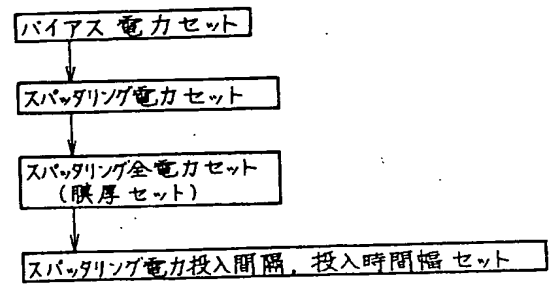 バイアス電力セット
スパッタリング電力セット
スパッタリング全電力セット
(膜厚セット)
スパッタリング電力投入間隔,投入時間幅セット